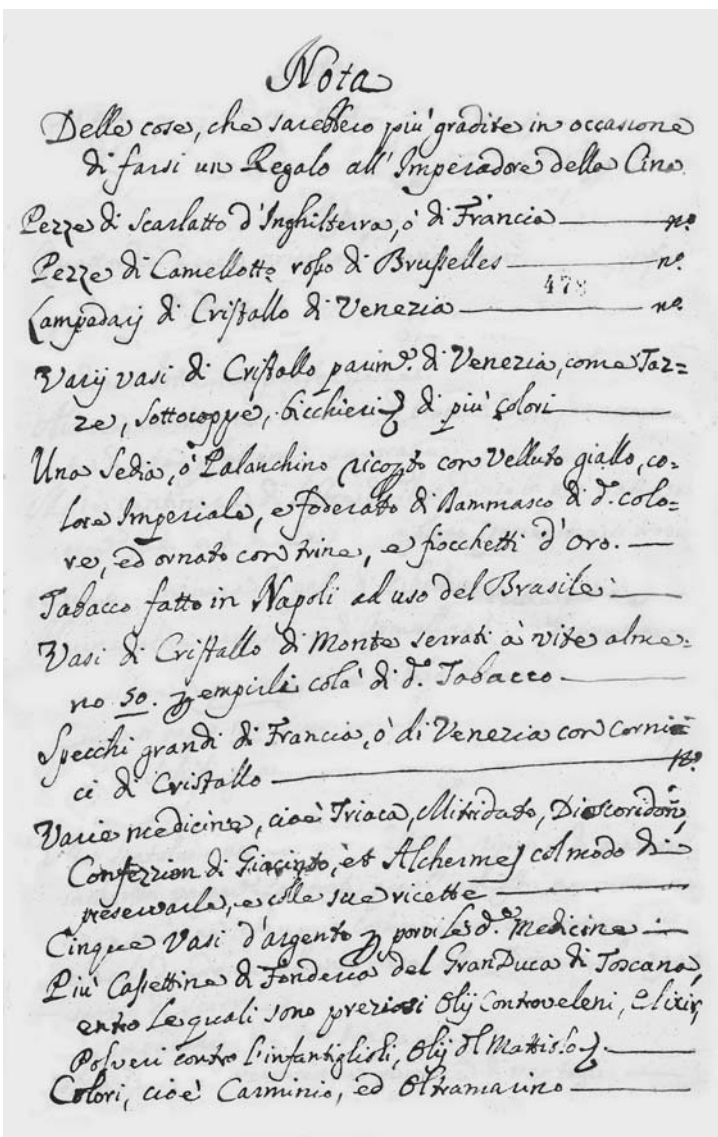 Nota
Delle cose, che sarebbero più gradite in occasione
di farsi un Regalo all'Imperadore della Cina
Pezze di Scarlatto d'Inghilterra, ò di Francia — nº
Pezze di Camellotto roso di Brusselles — nº
478
Lampadarj di Cristallo di Venezia — nº
Varij vasi di Cristallo parim.e di Venezia, come Taz=
ze, sottocoppe, bicchieri di più colori —
Una Sedia, ò Palanchino con Velluto giallo, co=
lore Imperiale, e foderato di Dammasco di d.º colo=
re, ed ornato con trine, e fiocchetti d'Oro. —
Tabacco fatto in Napoli ad uso del Brasile —
Vasi di Cristallo di Monte serrati à vite alme=
no 50. empirli colà di d.º Tabacco —
Specchi grandi di Francia, ò di Venezia con corni=
ci di Cristallo —
Varie medicine, cioè Triaca, Mitridato,
Confezzion di Giacinto, et Alchermes col modo di
preservarle, e colle sue ricette —
Cinque Vasi d'argento porvi le d.e Medicine —
Più Cassettine di Fonderia del GranDuca di Toscana,
entro le quali sono preziosi Olij Controveleni, Elixir,
Polveri contro l'infantiglioli, Olij del Mattiolo —
Colori, cioè Carminio, ed Oltramarino —